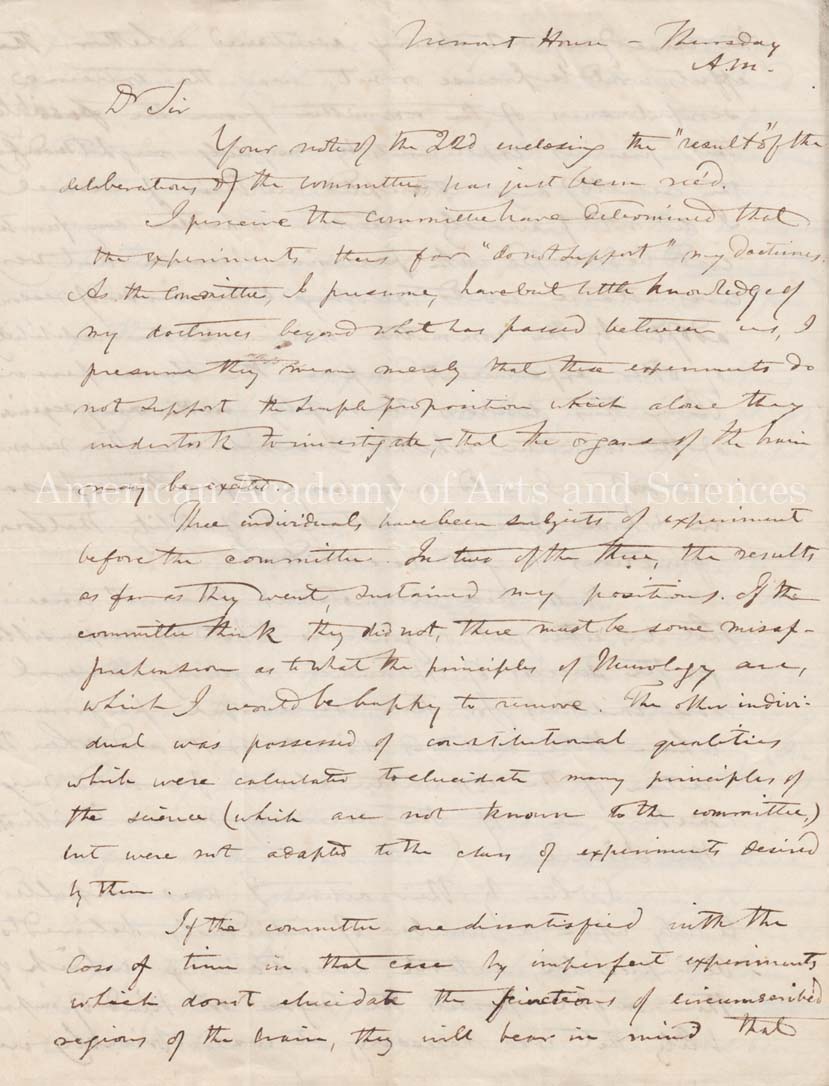 Tremont House – Thursday
A.M.
Dr Sir
Your note of the 22d enclosing the "results" of the
deliberations of the committee, has just been rec'd.
I perceive the committee have determined that
the experiments thus far "do not support" my doctrines.
As the committee, I presume, have but little knowledge of
my doctrines beyond what has passed between us, I
presume they mean merely that these experiments do
not support the simple proposition which alone they
undertook to investigate, – that the organs of the brain
may be excited.
American Academy of Arts and Sciences
Three individuals have been subjects of experiment
before the committee. In two of the three, the results
as far as they went, sustained my positions. If the
committee think they did not, there must be some misap-
prehension as to what the principles of Neurology are,
which I would be happy to remove. The other indivi-
dual was possessed of constitutional qualities
which were calculated to elucidate many principles of
the science (which are not known to the committee,)
but were not adapted to the class of experiments desired
by them.
If the committee are dissatisfied with the
loss of time in that case by imperfect experiments
which donot elucidate the functions of circumscribed
regions of the brain, they will bear in mind that